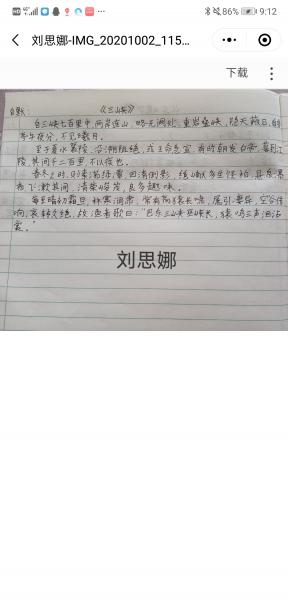 86% 9:12
刘思娜-IMG_20201002_115...
下载
《三峡》
自三峡七百里中,两岸连山,略无阙处,重岩叠嶂,隐天蔽日,自
非亭午夜分,不见曦月。
至于夏水襄陵,沿溯阻绝,或王命急宣,有时朝发白帝,暮到江
陵,其间千二百里,不以疾也。
春冬之时,则素湍绿潭,回清倒影,绝巘多生怪柏,悬泉瀑
布飞漱其间,清荣峻茂,良多趣味。
每至晴初霜旦,林寒涧肃,常有高猿长啸,属引凄异,空谷传
响,哀转久绝,故渔者歌曰:"巴东三峡巫峡长,猿鸣三声泪沾
裳。"
刘思娜